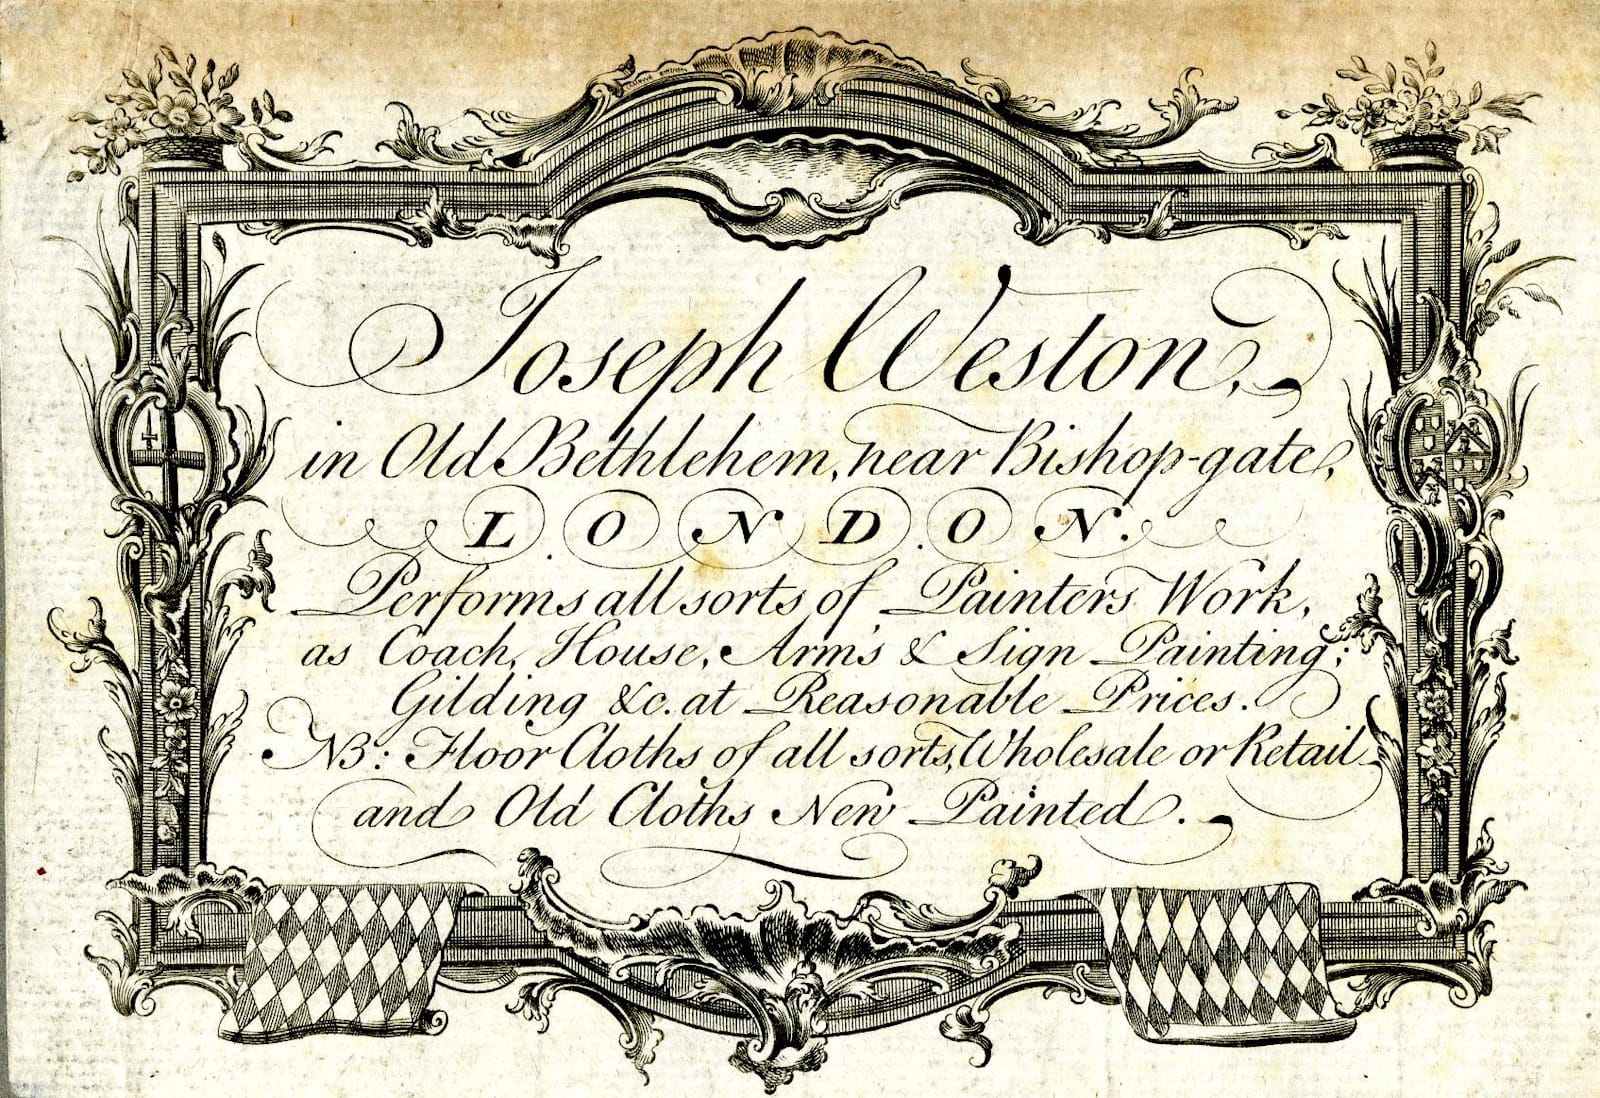 Joseph Weston,
in Old Bethlehem, near Bishop-gate,
LONDON.
Performs all sorts of Painters Work,
as Coach, House, Arm's & Sign Painting;
Gilding &c. at Reasonable Prices.
NB: Floor Cloths of all sorts, Wholesale or Retail
and Old Cloths New Painted.